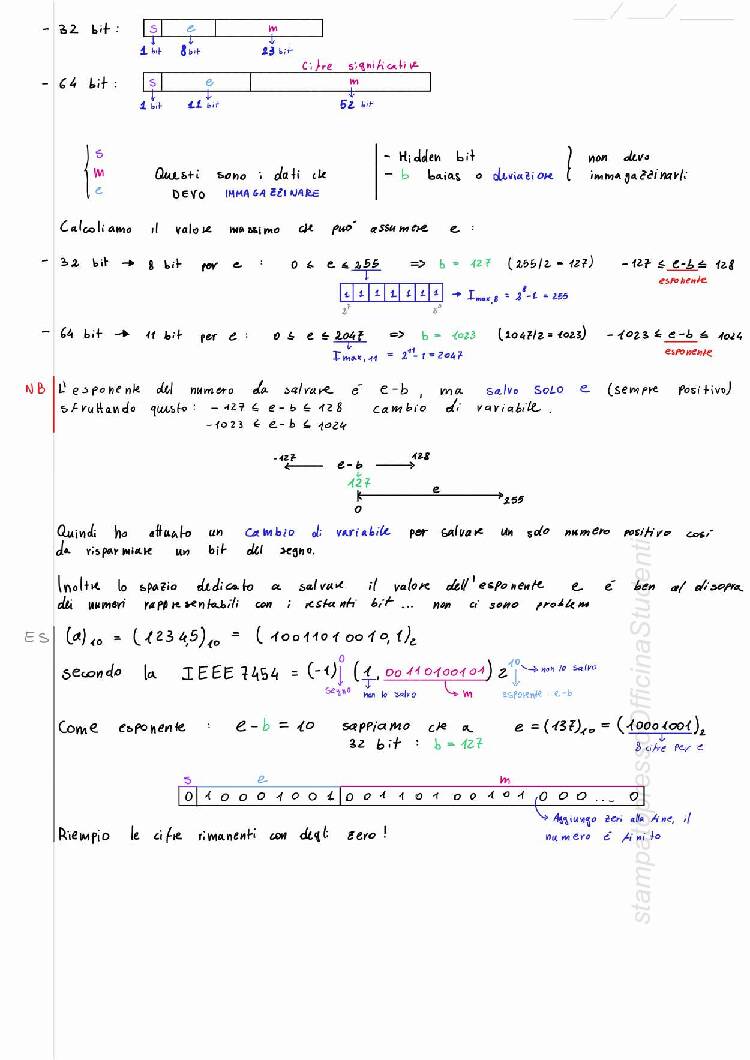 __/__/__
- 32 bit: s e m
1 bit 8 bit 23 bit
Cifre significative
- 64 bit: s e m
1 bit 11 bit 52 bit
s
m Questi sono i dati che
e DEVO IMMAGAZZINARE
- Hidden bit
- b baias o deviazione
non devo
immagazzinarli
Calcoliamo il valore massimo che può assumere e :
- 32 bit → 8 bit per e : 0 ≤ e ≤ 255 => b = 127 (255/2 = 127) -127 ≤ e-b ≤ 128
esponente
1 1 1 1 1 1 1 → Imax,8 = 2^8-1 = 255
2^7 2^0
- 64 bit → 11 bit per e : 0 ≤ e ≤ 2047 => b = 1023 (2047/2 = 1023) -1023 ≤ e-b ≤ 1024
Imax,11 = 2^11-1 = 2047 esponente
NB L'esponente del numero da salvare é e-b, ma salvo SOLO e (sempre positivo)
sfruttando questo: -127 ≤ e-b ≤ 128 cambio di variabile.
-1023 ≤ e-b ≤ 1024
-127 ← e-b → 128
127
e
0 255
Quindi ho attuato un cambio di variabile per salvare un solo numero positivo così
da risparmiare un bit del segno.
Inoltre lo spazio dedicato a salvare il valore dell'esponente e é ben al disopra
dei numeri rappresentabili con i restanti bit... non ci sono problemi
ES (a)10 = (1234,5)10 = (10011010010,1)2
secondo la IEEE 7454 = (-1)^0 (1,00110100101) 2^10 → non lo salvo
segno non lo salvo m esponente: e-b
Come esponente : e-b = 10 sappiamo che a e = (137)10 = (10001001)2
32 bit : b = 127 8 cifre per e
s e m
0 1 0 0 0 1 0 0 1 0 0 1 1 0 1 0 0 1 0 1 0 0 0 ... 0
Aggiungo zeri alla fine, il
numero é finito
Riempio le cifre rimanenti con degli zero!
stampato presso OfficinaStudenti